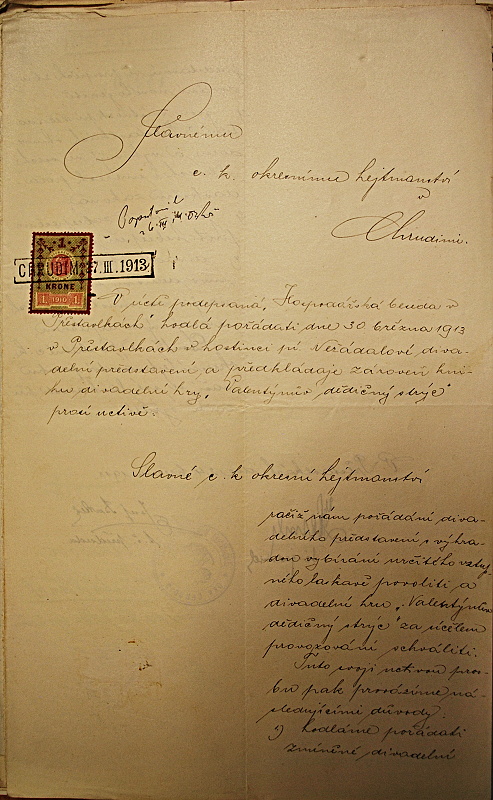 Slavnému
c. k. okresnímu hejtmanství
v
Chrudimi.
1
CHRUDIM 7. III. 1913
KRONE
1 1910 1
V úctě podepsaná, "Hospodářská beseda v
Přestavlkách" hodlá pořádati dne 30 března 1913
v Přestavlkách v hostinci pí Neřádalové diva-
delní představení a předkládaje zároveň kni-
hu divadelní hry, "Valentýnův dědičný strýc"
prosí uctivě:
Slavné c. k. okresní hejtmanství
račiž nám pořádání diva-
delního představení s výhra-
dou vybírání určitého vstup
ného laskavě povoliti a
divadelní hru "Valentýnův
dědičný strýc" za účelem
provozování schváliti.
Tuto svoji uctivou pros-
bu pak provázíme ná-
sledujícími důvody:
1) hodláme pořádati
zmíněné divadelní